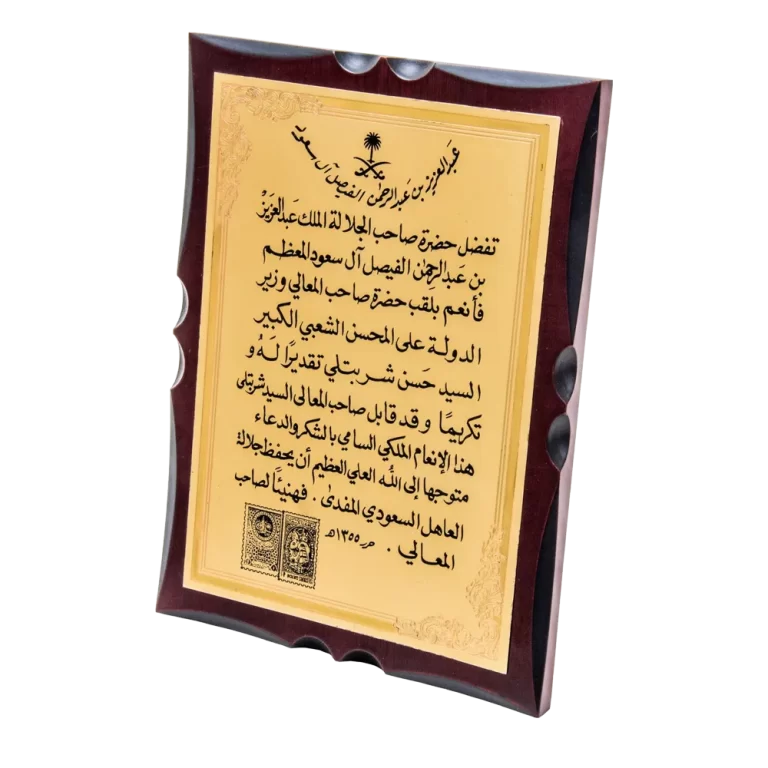 عبدالعزيز بن عبدالرحمن الفيصل آل سعود
تفضل حضرة صاحب الجلالة الملك عَبدالعَزيز
بن عَبدالرحمٰن الفيصل آل سعود المعظم
فأنعم بلقب حضرة صاحب المعالي وزير
الدولة على المحسن الشعبي الكبير
السيد حَسن شربتلي تقديرًا لَهُ و
تكريمًا وقد قابل صاحب المعالى السيد شربتلى
هذا الإنعام الملكي السامي بالشكر والدعاء
متوجها إلى الله العلي العظيم أن يحفظ جلالة
العاهل السعودي المفدى . فهنيئًا لصاحب
المعالي . ١٣٥٥هـ